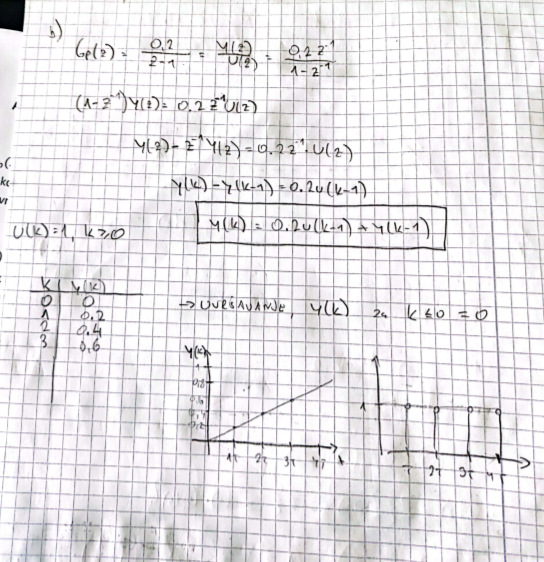 b)
Gp(z) = 0,2 / z-1 = Y(z) / U(z) = 0,2 z^-1 / 1-z^-1
(1-z^-1) Y(z) = 0.2 z^-1 U(z)
Y(z) - z^-1 Y(z) = 0.2 z^-1 · U(z)
y(k) - y(k-1) = 0.2u(k-1)
y(k) = 0.2u(k-1) + y(k-1)
U(k)=1, k≥0
k y(k)
0 0
1 0.2
2 0.4
3 0,6
→ UVRŠAVANJE, y(k) za k≤0 = 0
y(k)
1
0.8
0.6
0.4
0.2
1T 2T 3T 4T
1
T 2T 3T 4T